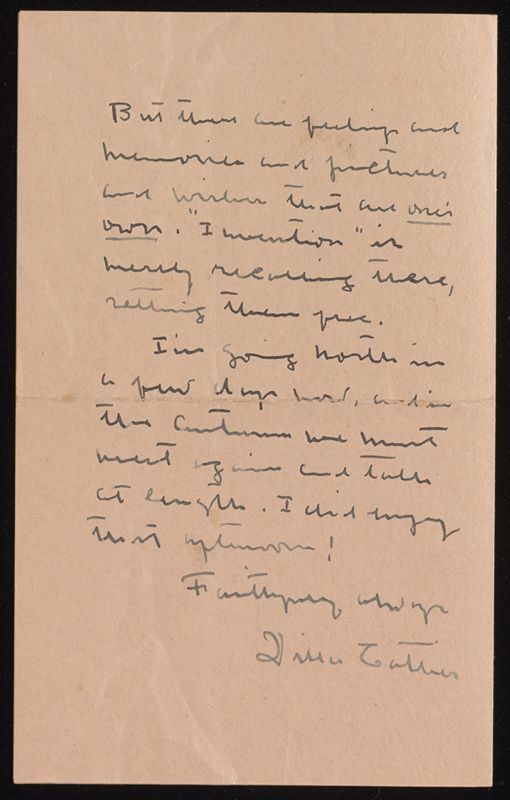 But there are feelings and
memories and pictures
and wishes that are one's
own. "Invention" is
merely recalling these,
setting them free.
I'm going north in
a few days now, and in
the autumn we must
meet again and talk
at length. I did enjoy
that afternoon!
Faithfully always
Willa Cather